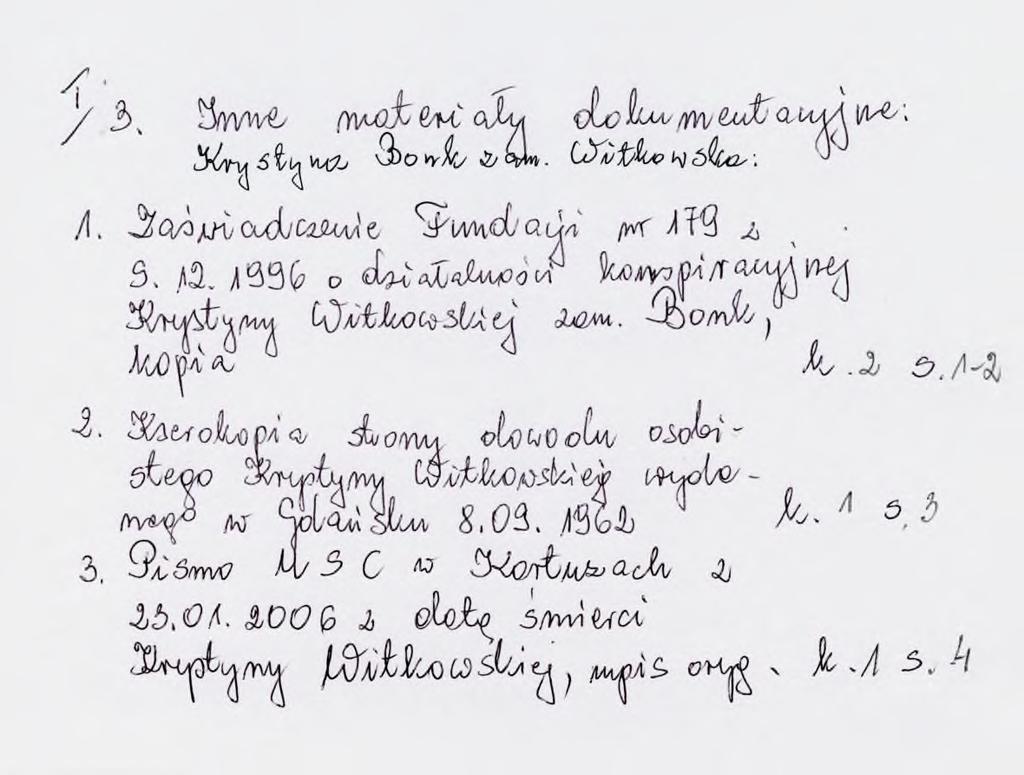 I/3. Inne materiały dokumentacyjne:
Krystyna Bonk zam. Witkowska:
1. Zaświadczenie Fundacji nr 179 z
9.12.1996 o działalności konspiracyjnej
Krystyny Witkowskiej zam. Bonk,
kopia k.2 s.1-2
2. Kserokopia strony dowodu osobi-
stego Krystyny Witkowskiej wyda-
nego w Gdańsku 8.09.1962 k.1 s.3
3. Pismo USC w Kartuzach z
23.01.2006 z datą śmierci
Krystyny Witkowskiej, mpis oryg. k.1 s.4